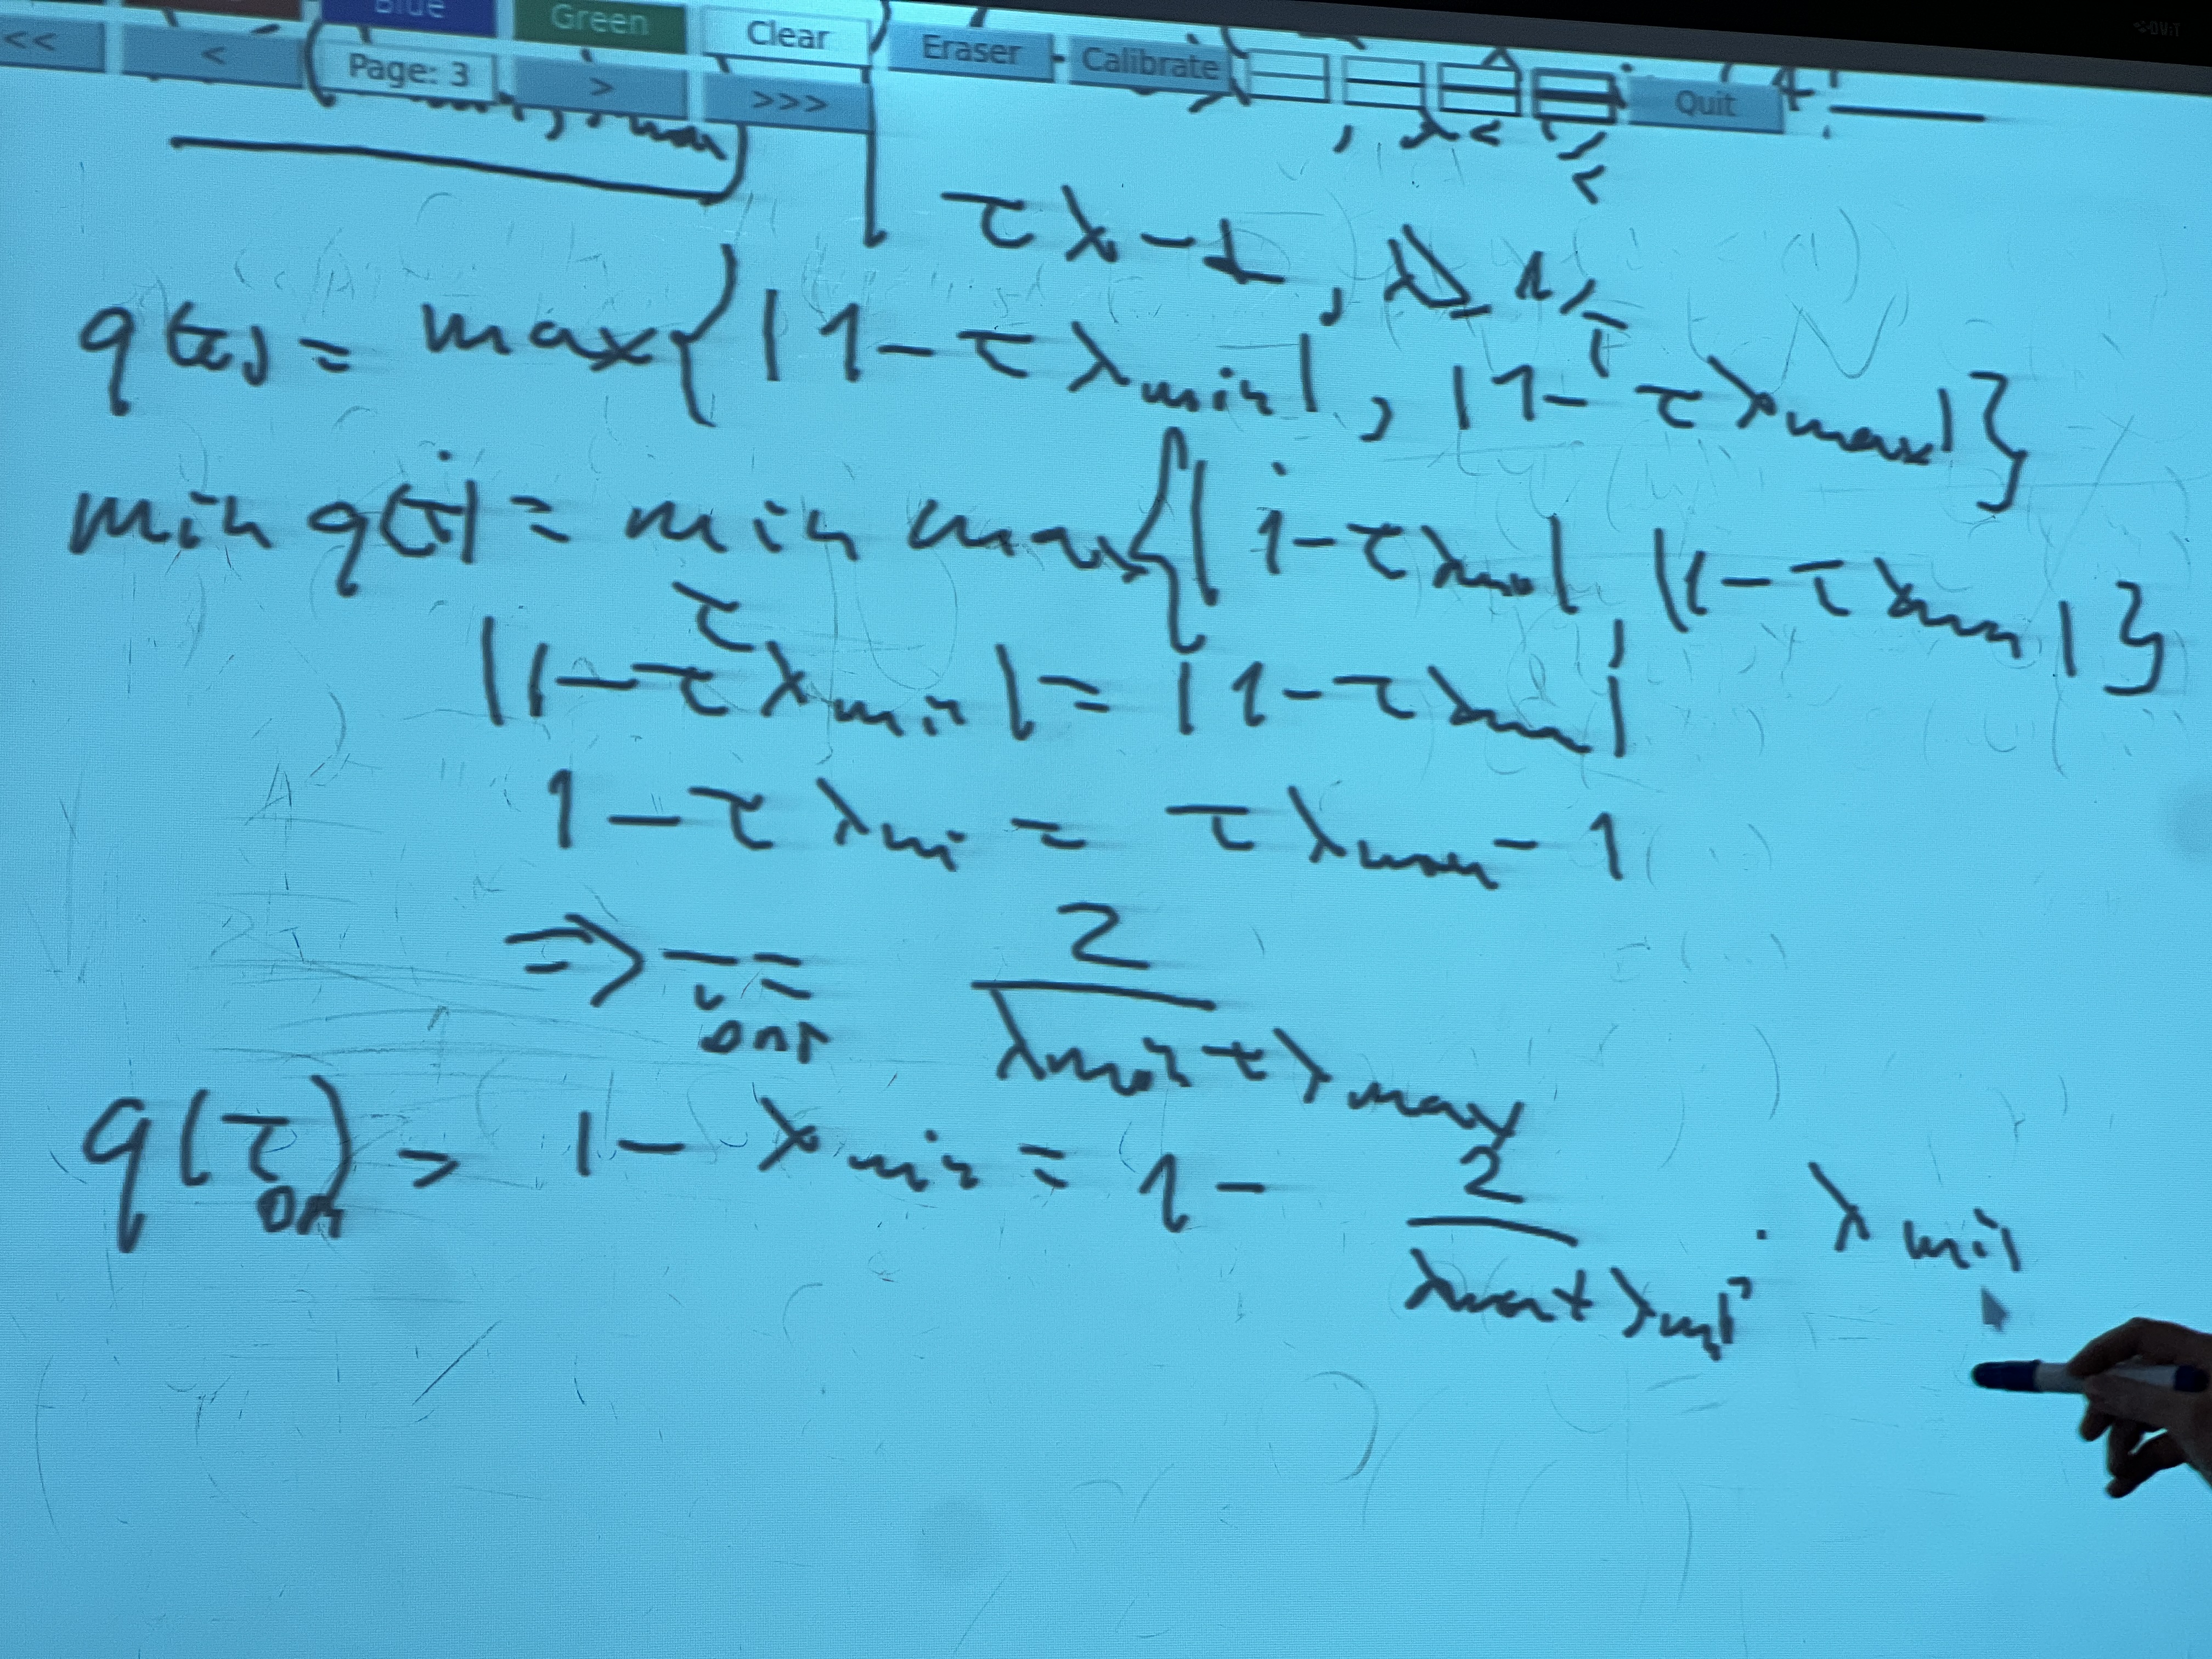 Blue Green Clear Eraser Calibrate Quit
<< < Page: 3 > >>>
τλ - 1, λ ≥ 1/τ
q(τ) = max{|1 - τλ_min|, |1 - τλ_max|}
min q(τ) = min max{|1 - τλ_min|, |1 - τλ_max|}
τ
|1 - τλ_min| = |1 - τλ_max|
1 - τλ_mi = τλ_max - 1
⇒ τ_opt = 2 / (λ_min + λ_max)
q(τ_opt) = 1 - λ_min = 1 - 2 / (λ_max + λ_min) · λ_min